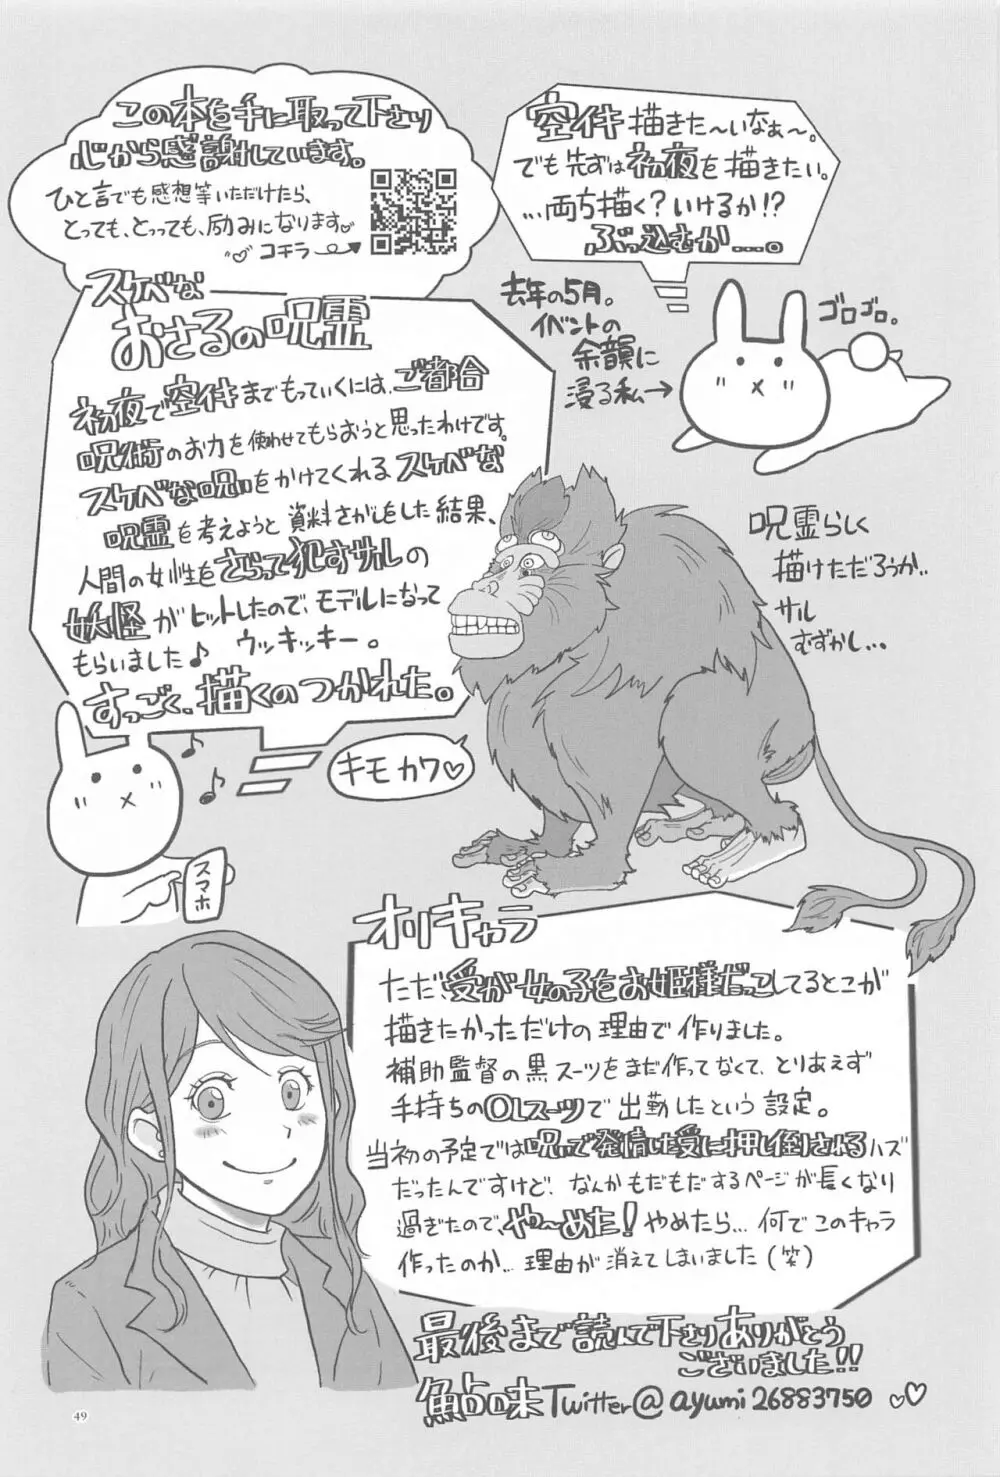 この本を手に取って下さり
心から感謝しています。
ひと言でも感想等いただけたら、
とっても、とっっても、励みになります♡
コチラ
空イキ描きた〜いなぁ〜。
でも先ずは初夜を描きたい。
…両方描く？いけるか!?
ぶっ込むか……。
去年の5月。
イベントの
余韻に
浸る私→
ゴロゴロ。
スケベな
おさるの呪霊
初夜で空イキまでもっていくには、ご都合
呪術のお力を使わせてもらおうと思ったわけです。
スケベな呪いをかけてくれるスケベな
呪霊を考えようと資料さがしをした結果、
人間の女性をさらって犯すサルの
妖怪がヒットしたので、モデルになって
もらいました♪ウッキッキー。
すっごく、描くのつかれた。
呪霊らしく
描けただろうか..
サル
むずかし...
キモカワ♡
スマホ
オリキャラ
ただ、受が女の子をお姫様だっこしてるとこが
描きたかっただけの理由で作りました。
補助監督の黒スーツをまだ作ってなくて、とりあえず
手持ちのOLスーツで出勤したという設定。
当初の予定では呪いで発情した受に押し倒されるハズ
だったんですけど、なんかもだもだするページが長くなり
過ぎたので、や〜めた！やめたら…何でこのキャラ
作ったのか…理由が消えてしまいました(笑)
最後まで読んで下さりありがとう
ございました!!
鮎味Twitter@ayumi26883750
49